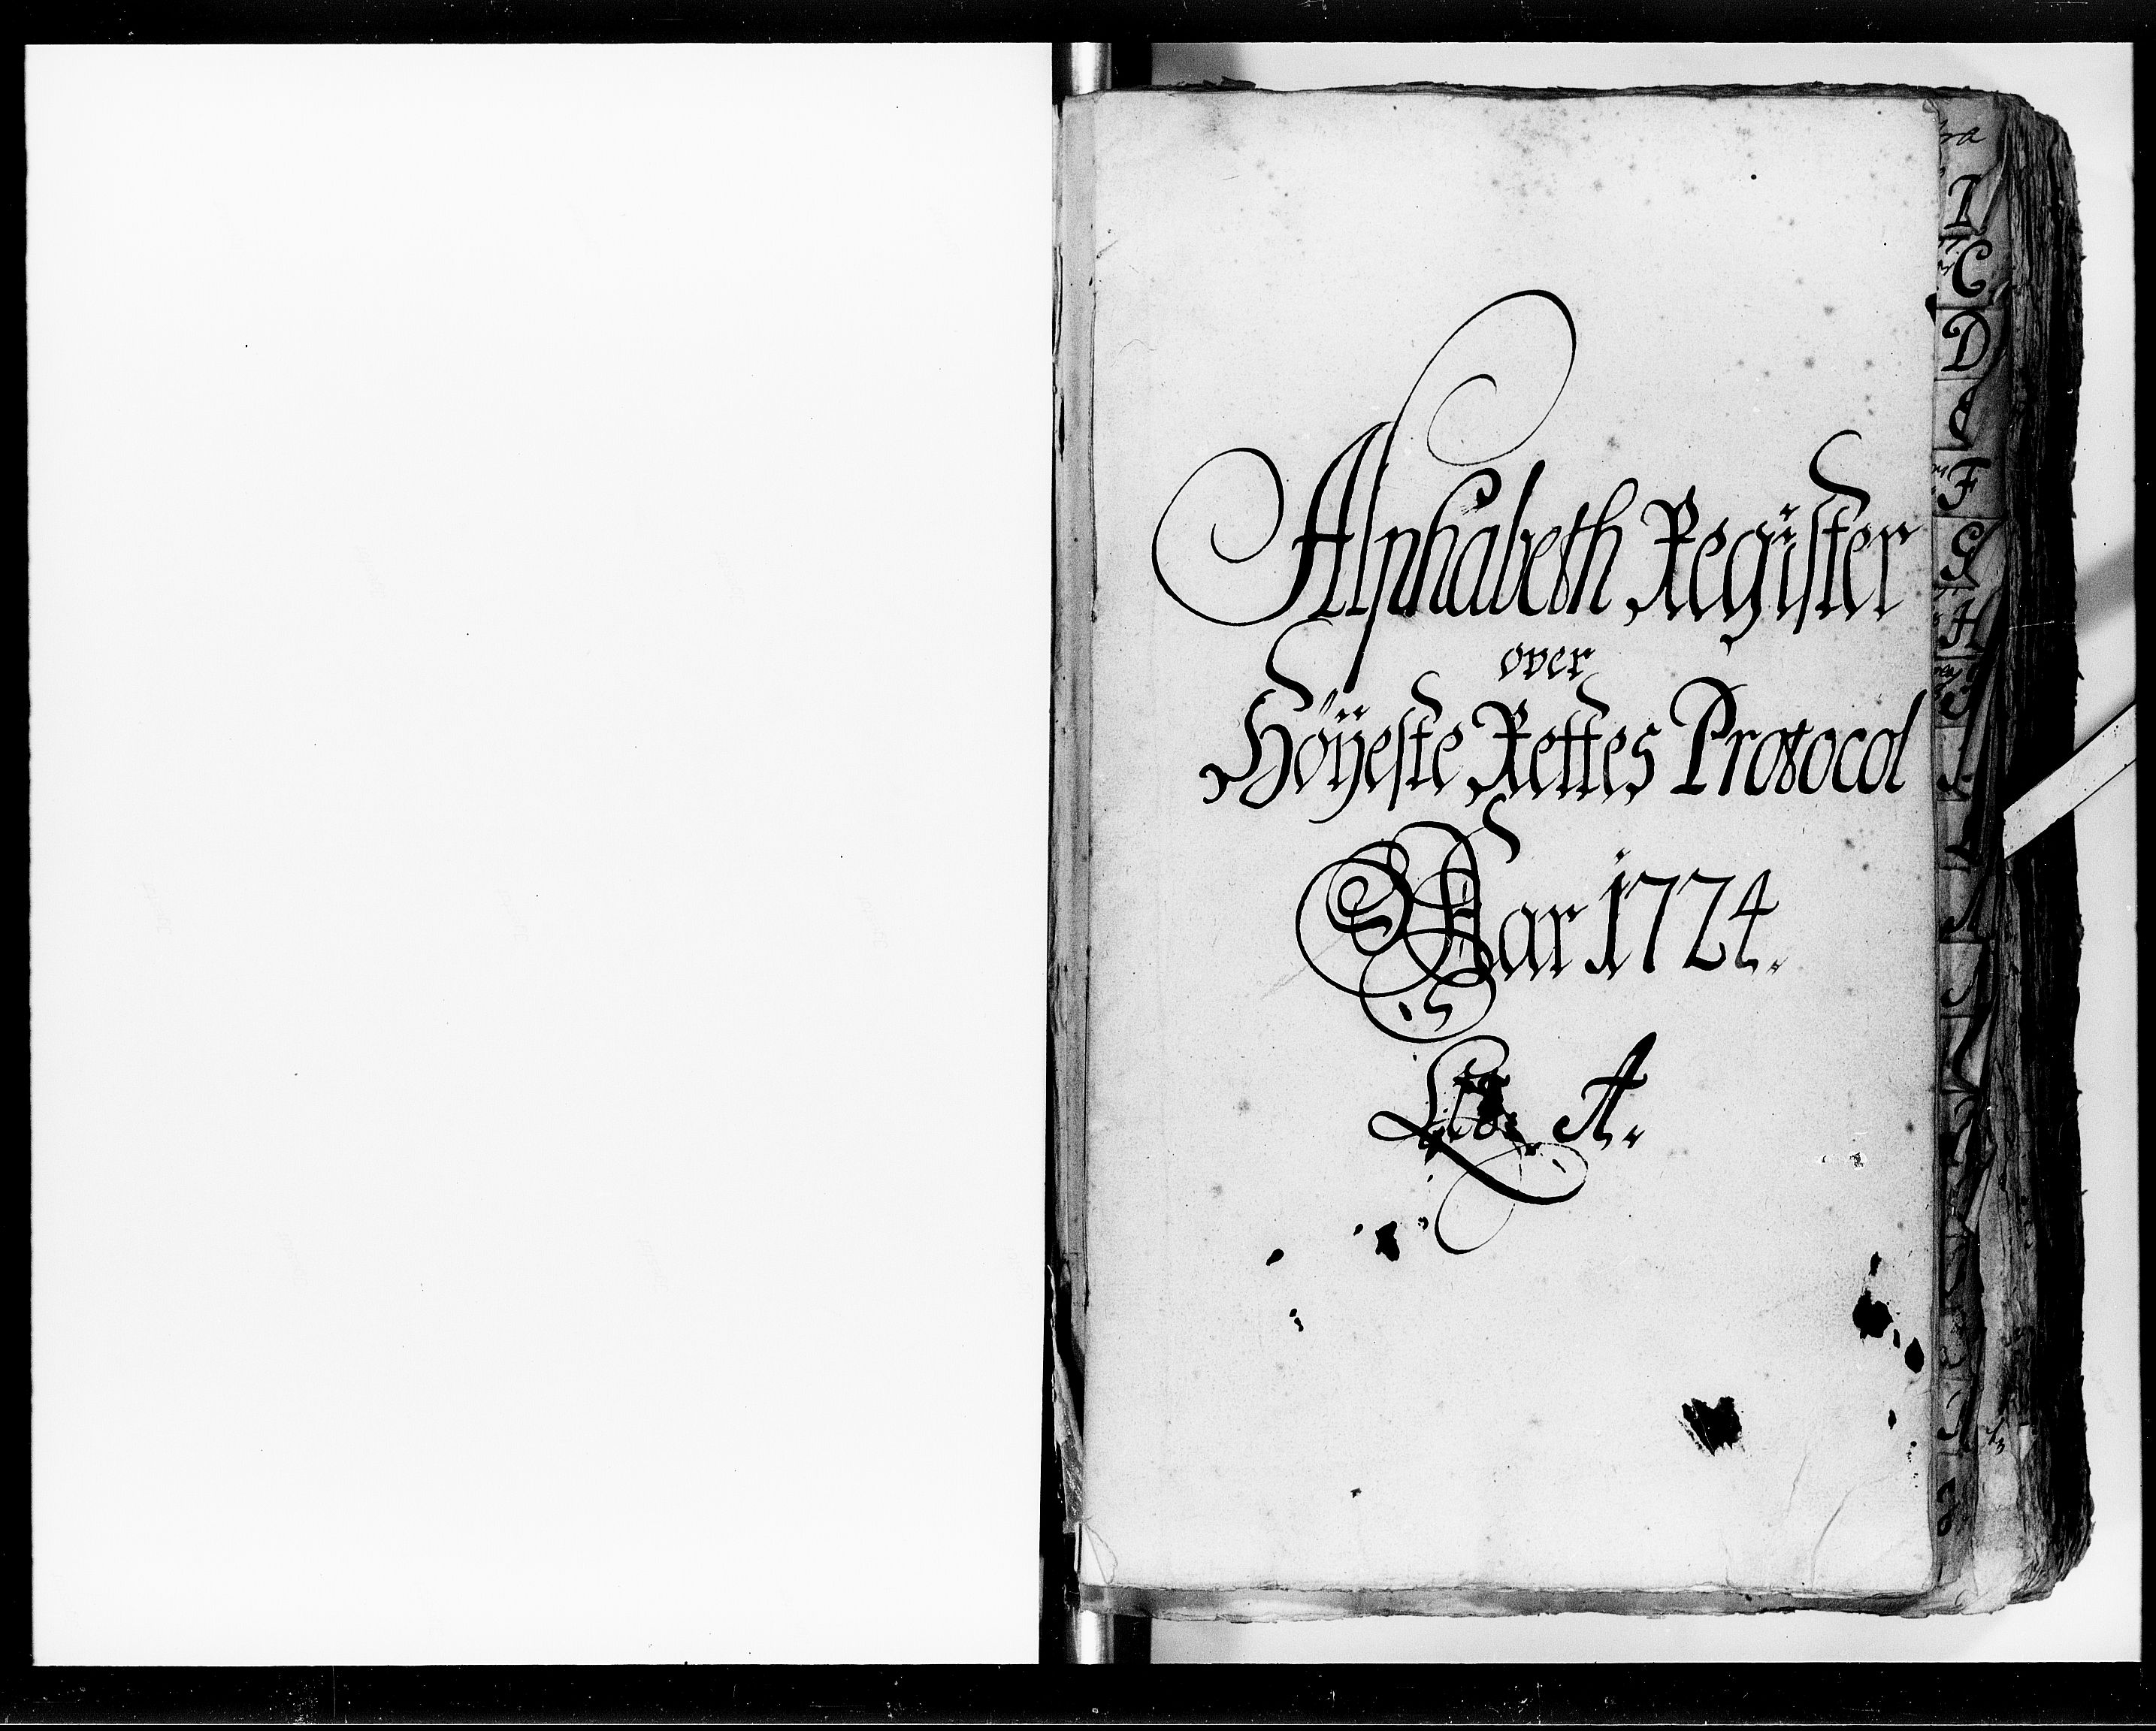 Alphabeth Register
over
Höÿeste Rettes Protocol
Aar 1724.
Litr: A.